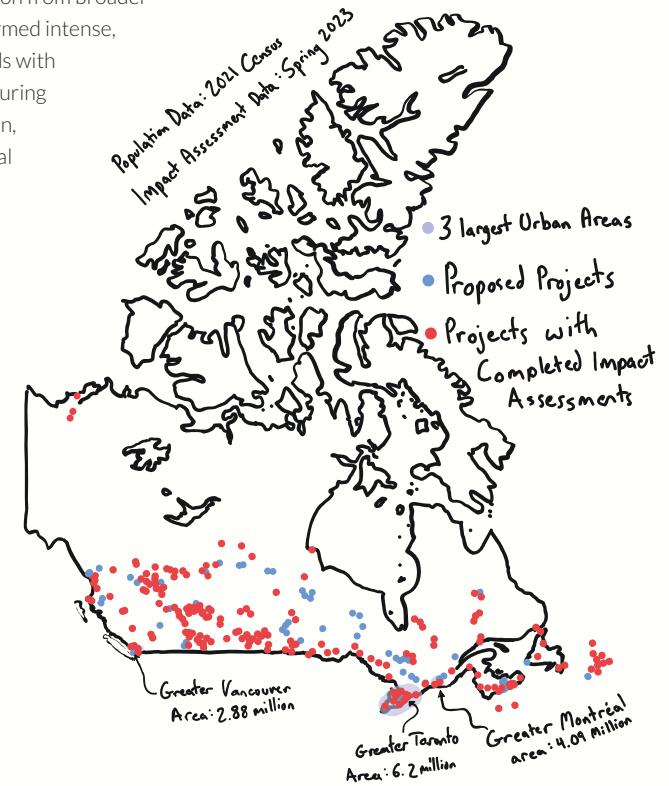 on from broader
rmed intense,
ls with
uring
n,
al
Population Data: 2021 Census
Impact Assessment Data: Spring 2023
3 largest Urban Areas
Proposed Projects
Projects with
Completed Impact
Assessments
Greater Vancouver
Area: 2.88 million
Greater Taranto
Area: 6.2 million
Greater Montréal
area: 4.09 Million